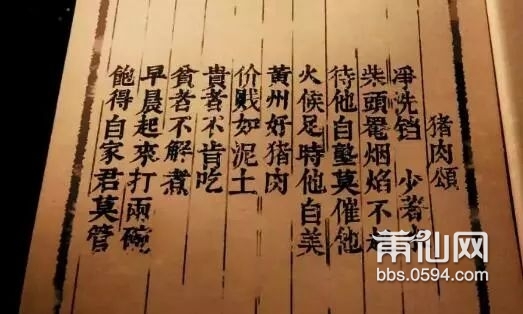 猪肉頌
凈洗铛 少著水
柴頭罨烟焰不起
待他自塾莫催他
火候足時他自美
黄州好猪肉
价贱如泥土
貴者不肯吃
貧者不解煮
早晨起來打兩碗
飽得自家君莫管
莆仙网
bbs.0594.com